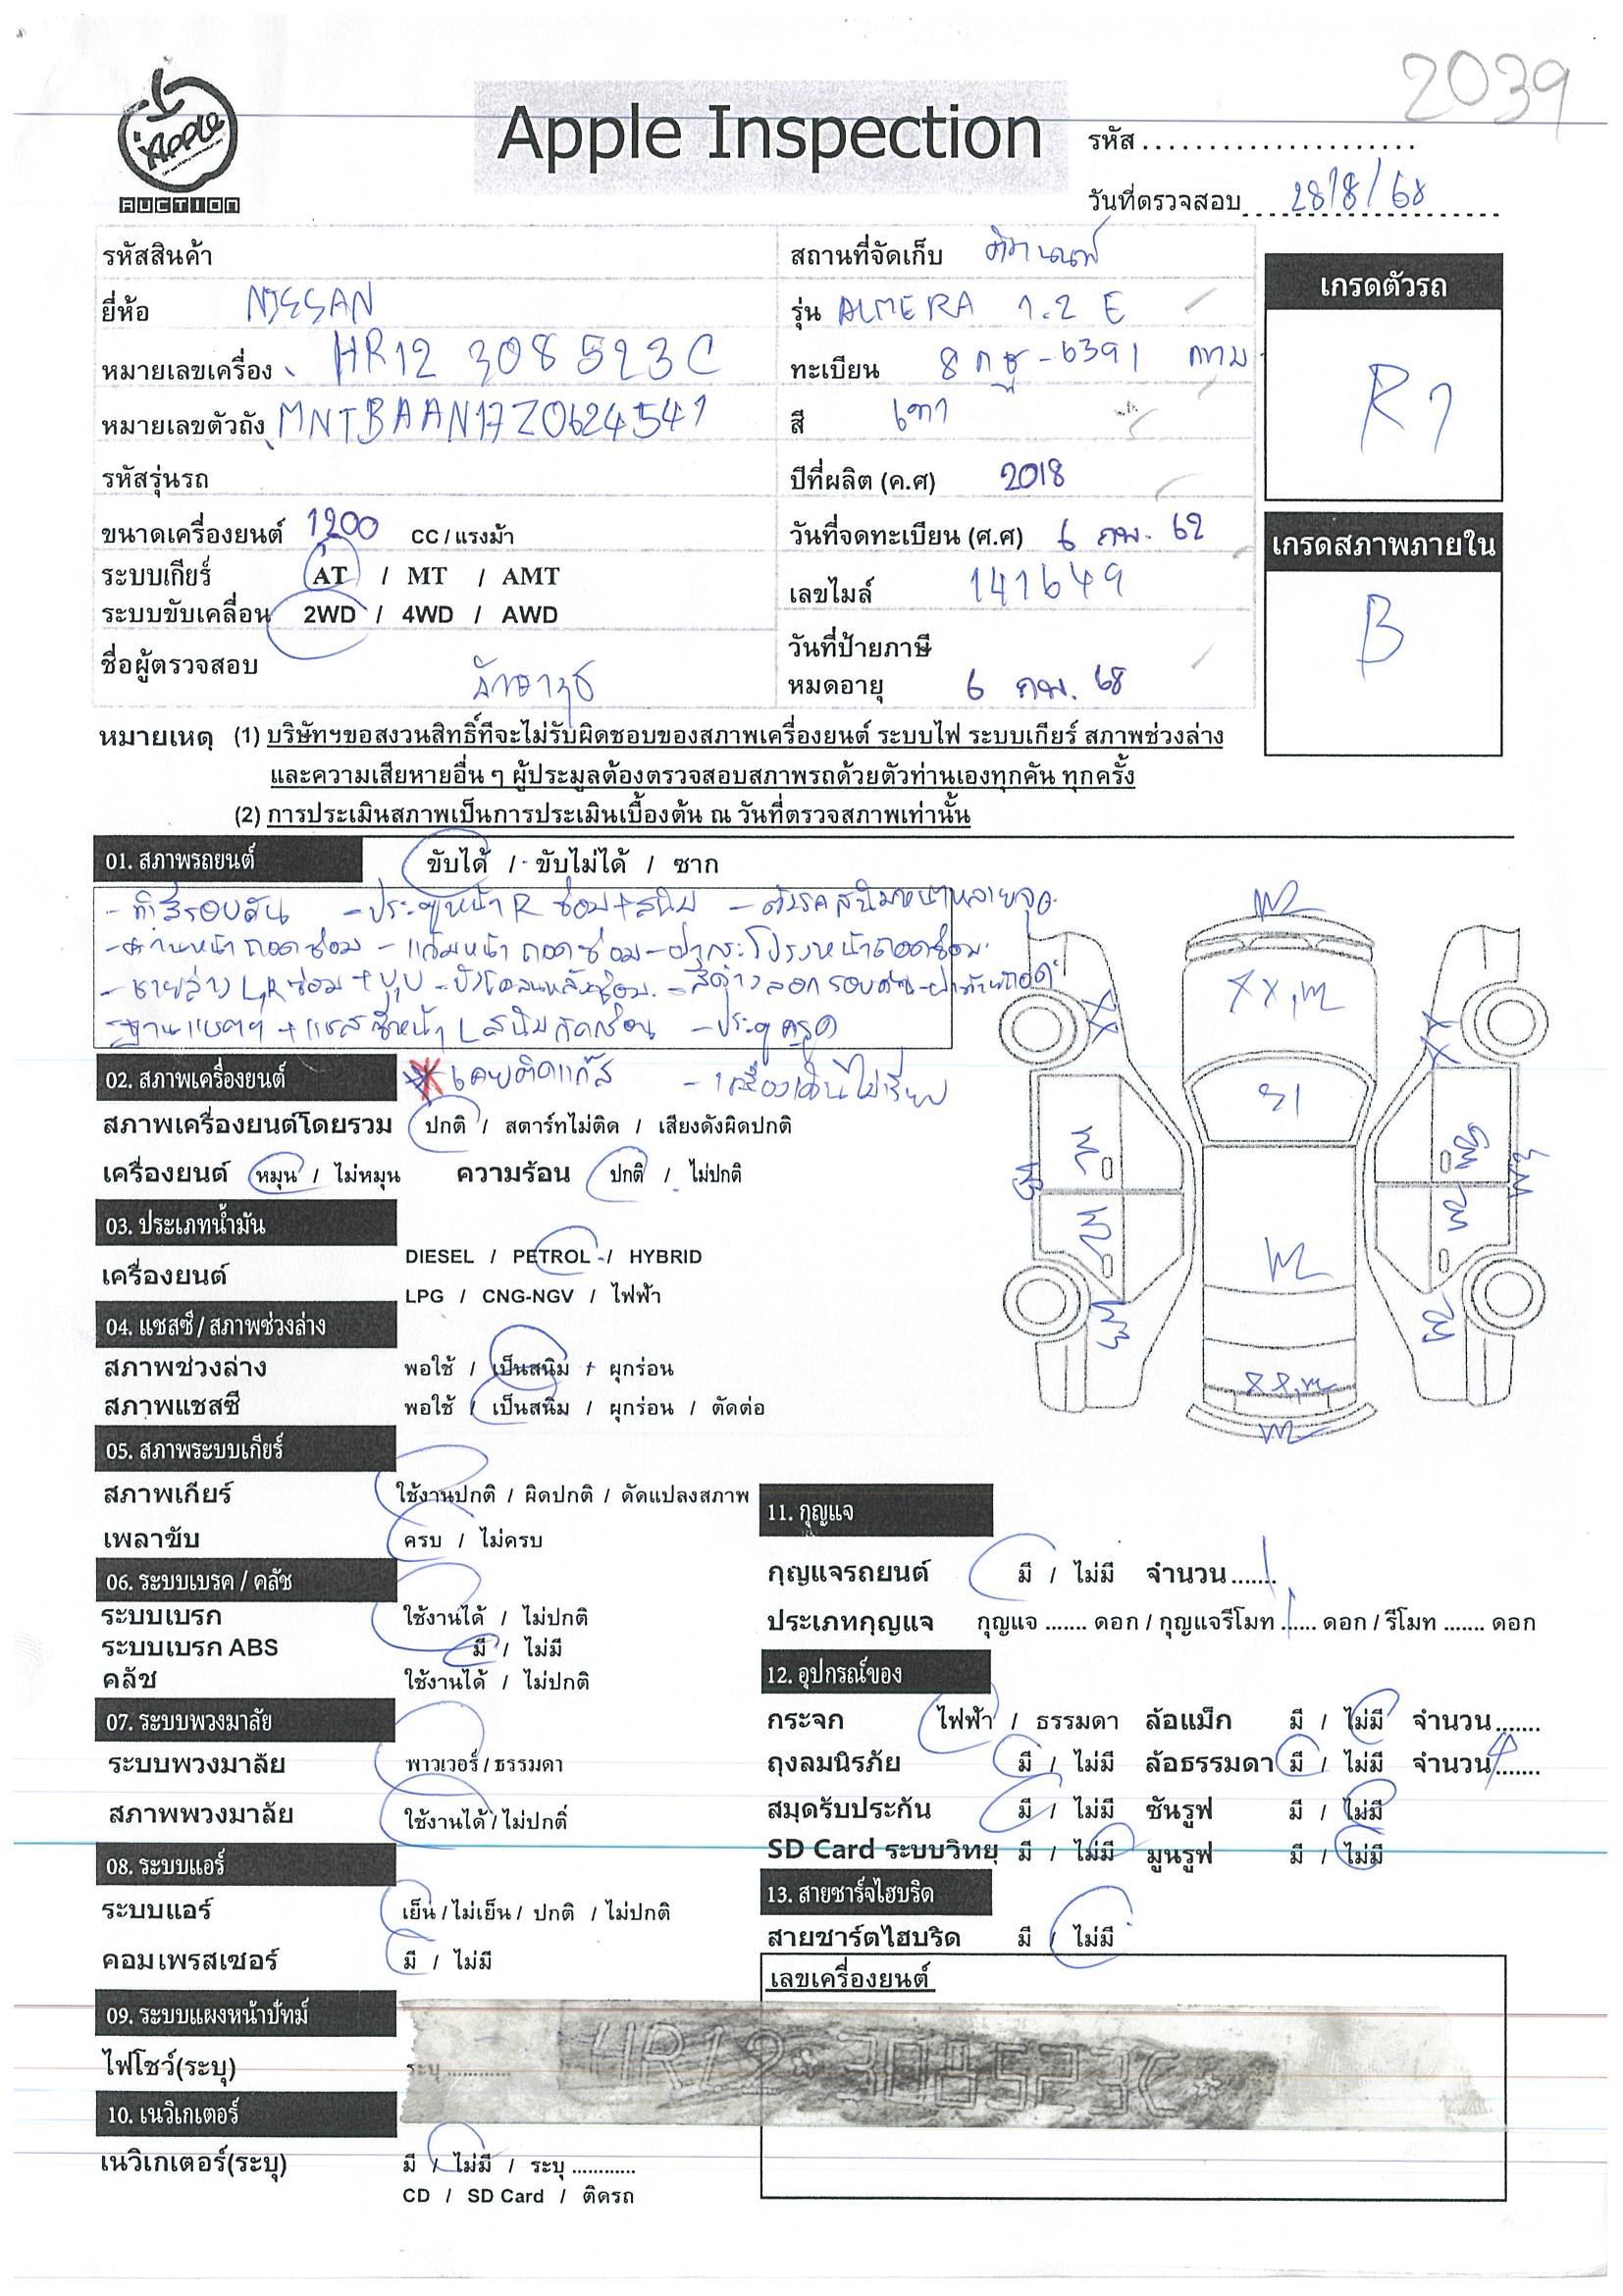 2039
Apple
AUCTION
Apple Inspection
รหัส ....................
วันที่ตรวจสอบ 28/8/68
รหัสสินค้า
สถานที่จัดเก็บ
ยี่ห้อ NISSAN
รุ่น ALMERA 1.2 E
หมายเลขเครื่อง HR12 308523C
ทะเบียน 8กฐ-6391 กทม
หมายเลขตัวถัง MNTBAAN17Z0624541
สี เทา
รหัสรุ่นรถ
ปีที่ผลิต (ค.ศ) 2018
ขนาดเครื่องยนต์ 1200 CC / แรงม้า
วันที่จดทะเบียน (ศ.ศ) 6 กพ. 62
ระบบเกียร์ AT / MT / AMT
เลขไมล์ 141649
ระบบขับเคลื่อน 2WD / 4WD / AWD
ชื่อผู้ตรวจสอบ
วันที่ป้ายภาษี
หมดอายุ 6 กพ. 68
เกรดตัวรถ
R7
เกรดสภาพภายใน
B
หมายเหตุ (1) บริษัทฯขอสงวนสิทธิ์ที่จะไม่รับผิดชอบของสภาพเครื่องยนต์ ระบบไฟ ระบบเกียร์ สภาพช่วงล่าง
และความเสียหายอื่น ๆ ผู้ประมูลต้องตรวจสอบสภาพรถด้วยตัวท่านเองทุกคัน ทุกครั้ง
(2) การประเมินสภาพเป็นการประเมินเบื้องต้น ณ วันที่ตรวจสภาพเท่านั้น
01. สภาพรถยนต์ ขับได้ / ขับไม่ได้ / ซาก
- ทำสีรอบคัน - ประตูหน้า R ซ่อม+สนิม - ตัวรถสนิมหน้าหลายจุด
- คานหน้าถอดซ่อม - แก้มหน้าถอดซ่อม - ฝากระโปรงหน้าถอดซ่อม
- ชายล่าง L,R ซ่อม + บุบ - บังโคลนหลังซ่อม - สีด่างลอกรอบคัน - ฝาท้ายถอด
- ฐานแบตฯ + แชสซีหน้า L สนิมกัดกร่อน - ประตูครูด
02. สภาพเครื่องยนต์ เคยติดแก๊ส - เครื่องเดินไม่เรียบ
สภาพเครื่องยนต์โดยรวม ปกติ / สตาร์ทไม่ติด / เสียงดังผิดปกติ
เครื่องยนต์ หมุน / ไม่หมุน ความร้อน ปกติ / ไม่ปกติ
03. ประเภทน้ำมัน
เครื่องยนต์ DIESEL / PETROL / HYBRID
LPG / CNG-NGV / ไฟฟ้า
04. แชสซี / สภาพช่วงล่าง
สภาพช่วงล่าง พอใช้ / เป็นสนิม / ผุกร่อน
สภาพแชสซี พอใช้ / เป็นสนิม / ผุกร่อน / ตัดต่อ
05. สภาพระบบเกียร์
สภาพเกียร์ ใช้งานปกติ / ผิดปกติ / ดัดแปลงสภาพ
เพลาขับ ครบ / ไม่ครบ
06. ระบบเบรค / คลัช
ระบบเบรก ใช้งานได้ / ไม่ปกติ
ระบบเบรก ABS มี / ไม่มี
คลัช ใช้งานได้ / ไม่ปกติ
07. ระบบพวงมาลัย
ระบบพวงมาลัย พาวเวอร์ / ธรรมดา
สภาพพวงมาลัย ใช้งานได้ / ไม่ปกติ
08. ระบบแอร์
ระบบแอร์ เย็น / ไม่เย็น / ปกติ / ไม่ปกติ
คอมเพรสเซอร์ มี / ไม่มี
09. ระบบแผงหน้าปัทม์
ไฟโชว์(ระบุ) ระบุ ............
10. เนวิเกเตอร์
เนวิเกเตอร์(ระบุ) มี / ไม่มี / ระบุ ............
CD / SD Card / ติดรถ
11. กุญแจ
กุญแจรถยนต์ มี / ไม่มี จำนวน 1
ประเภทกุญแจ กุญแจ ....... ดอก / กุญแจรีโมท 1 ดอก / รีโมท ....... ดอก
12. อุปกรณ์ของ
กระจก ไฟฟ้า / ธรรมดา ล้อแม็ก มี / ไม่มี จำนวน .......
ถุงลมนิรภัย มี / ไม่มี ล้อธรรมดา มี / ไม่มี จำนวน 4
สมุดรับประกัน มี / ไม่มี ซันรูฟ มี / ไม่มี
SD Card ระบบวิทยุ มี / ไม่มี มูนรูฟ มี / ไม่มี
13. สายชาร์จไฮบริด
สายชาร์ตไฮบริด มี / ไม่มี
เลขเครื่องยนต์
HR12 308523C